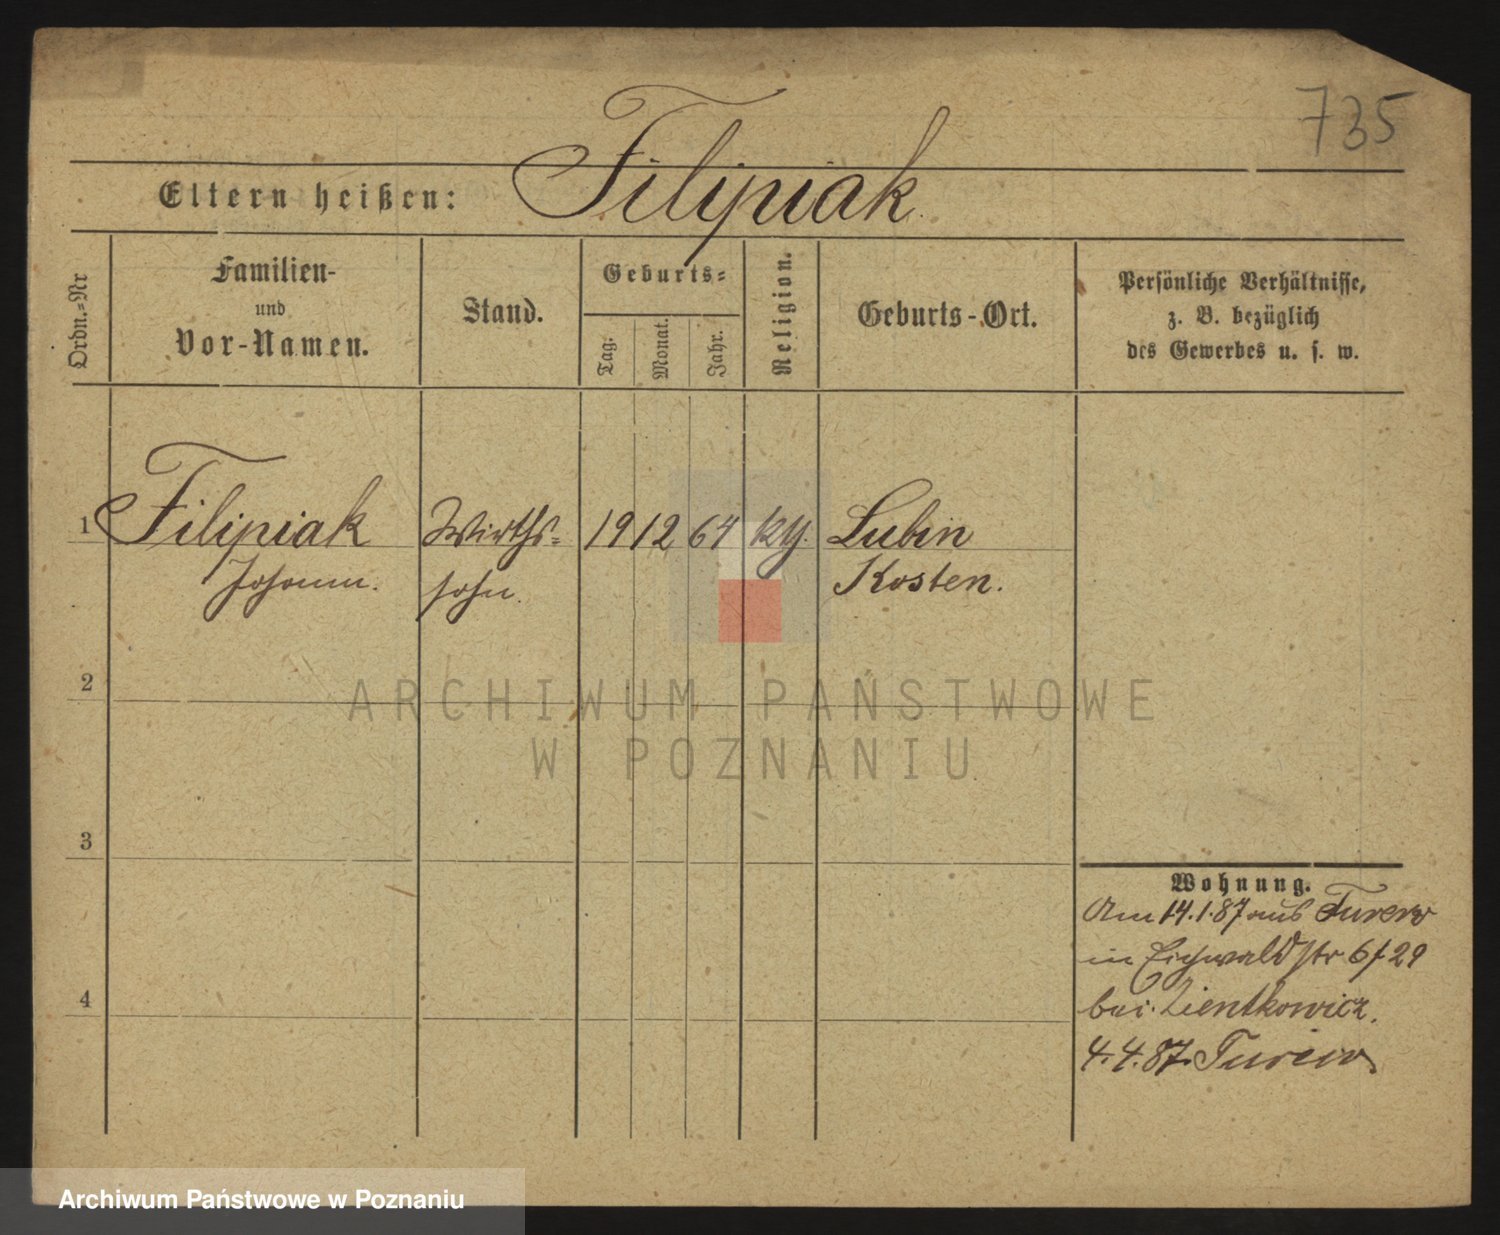 735
Filipiak
Eltern heißen:
Ordn.-Nr
Familien-
und
Vor-Namen.
Stand.
Geburts-
Tag:
Monat.
Jahr.
Religion.
Geburts-Ort.
Persönliche Verhältnisse,
z. B. bezüglich
des Gewerbes u. s. w.
1 Filipiak Wirths- 19 12 64 Lubin
Johann. sohn. Kosten.
2
ARCHIWUM PAŃSTWOWE
W POZNANIU
3
4
Wohnung.
Am 14.1.87 aus Turew
in Eichwaldstr 6/29
bei Zientkowicz.
4.4.87. Turew
Archiwum Państwowe w Poznaniu